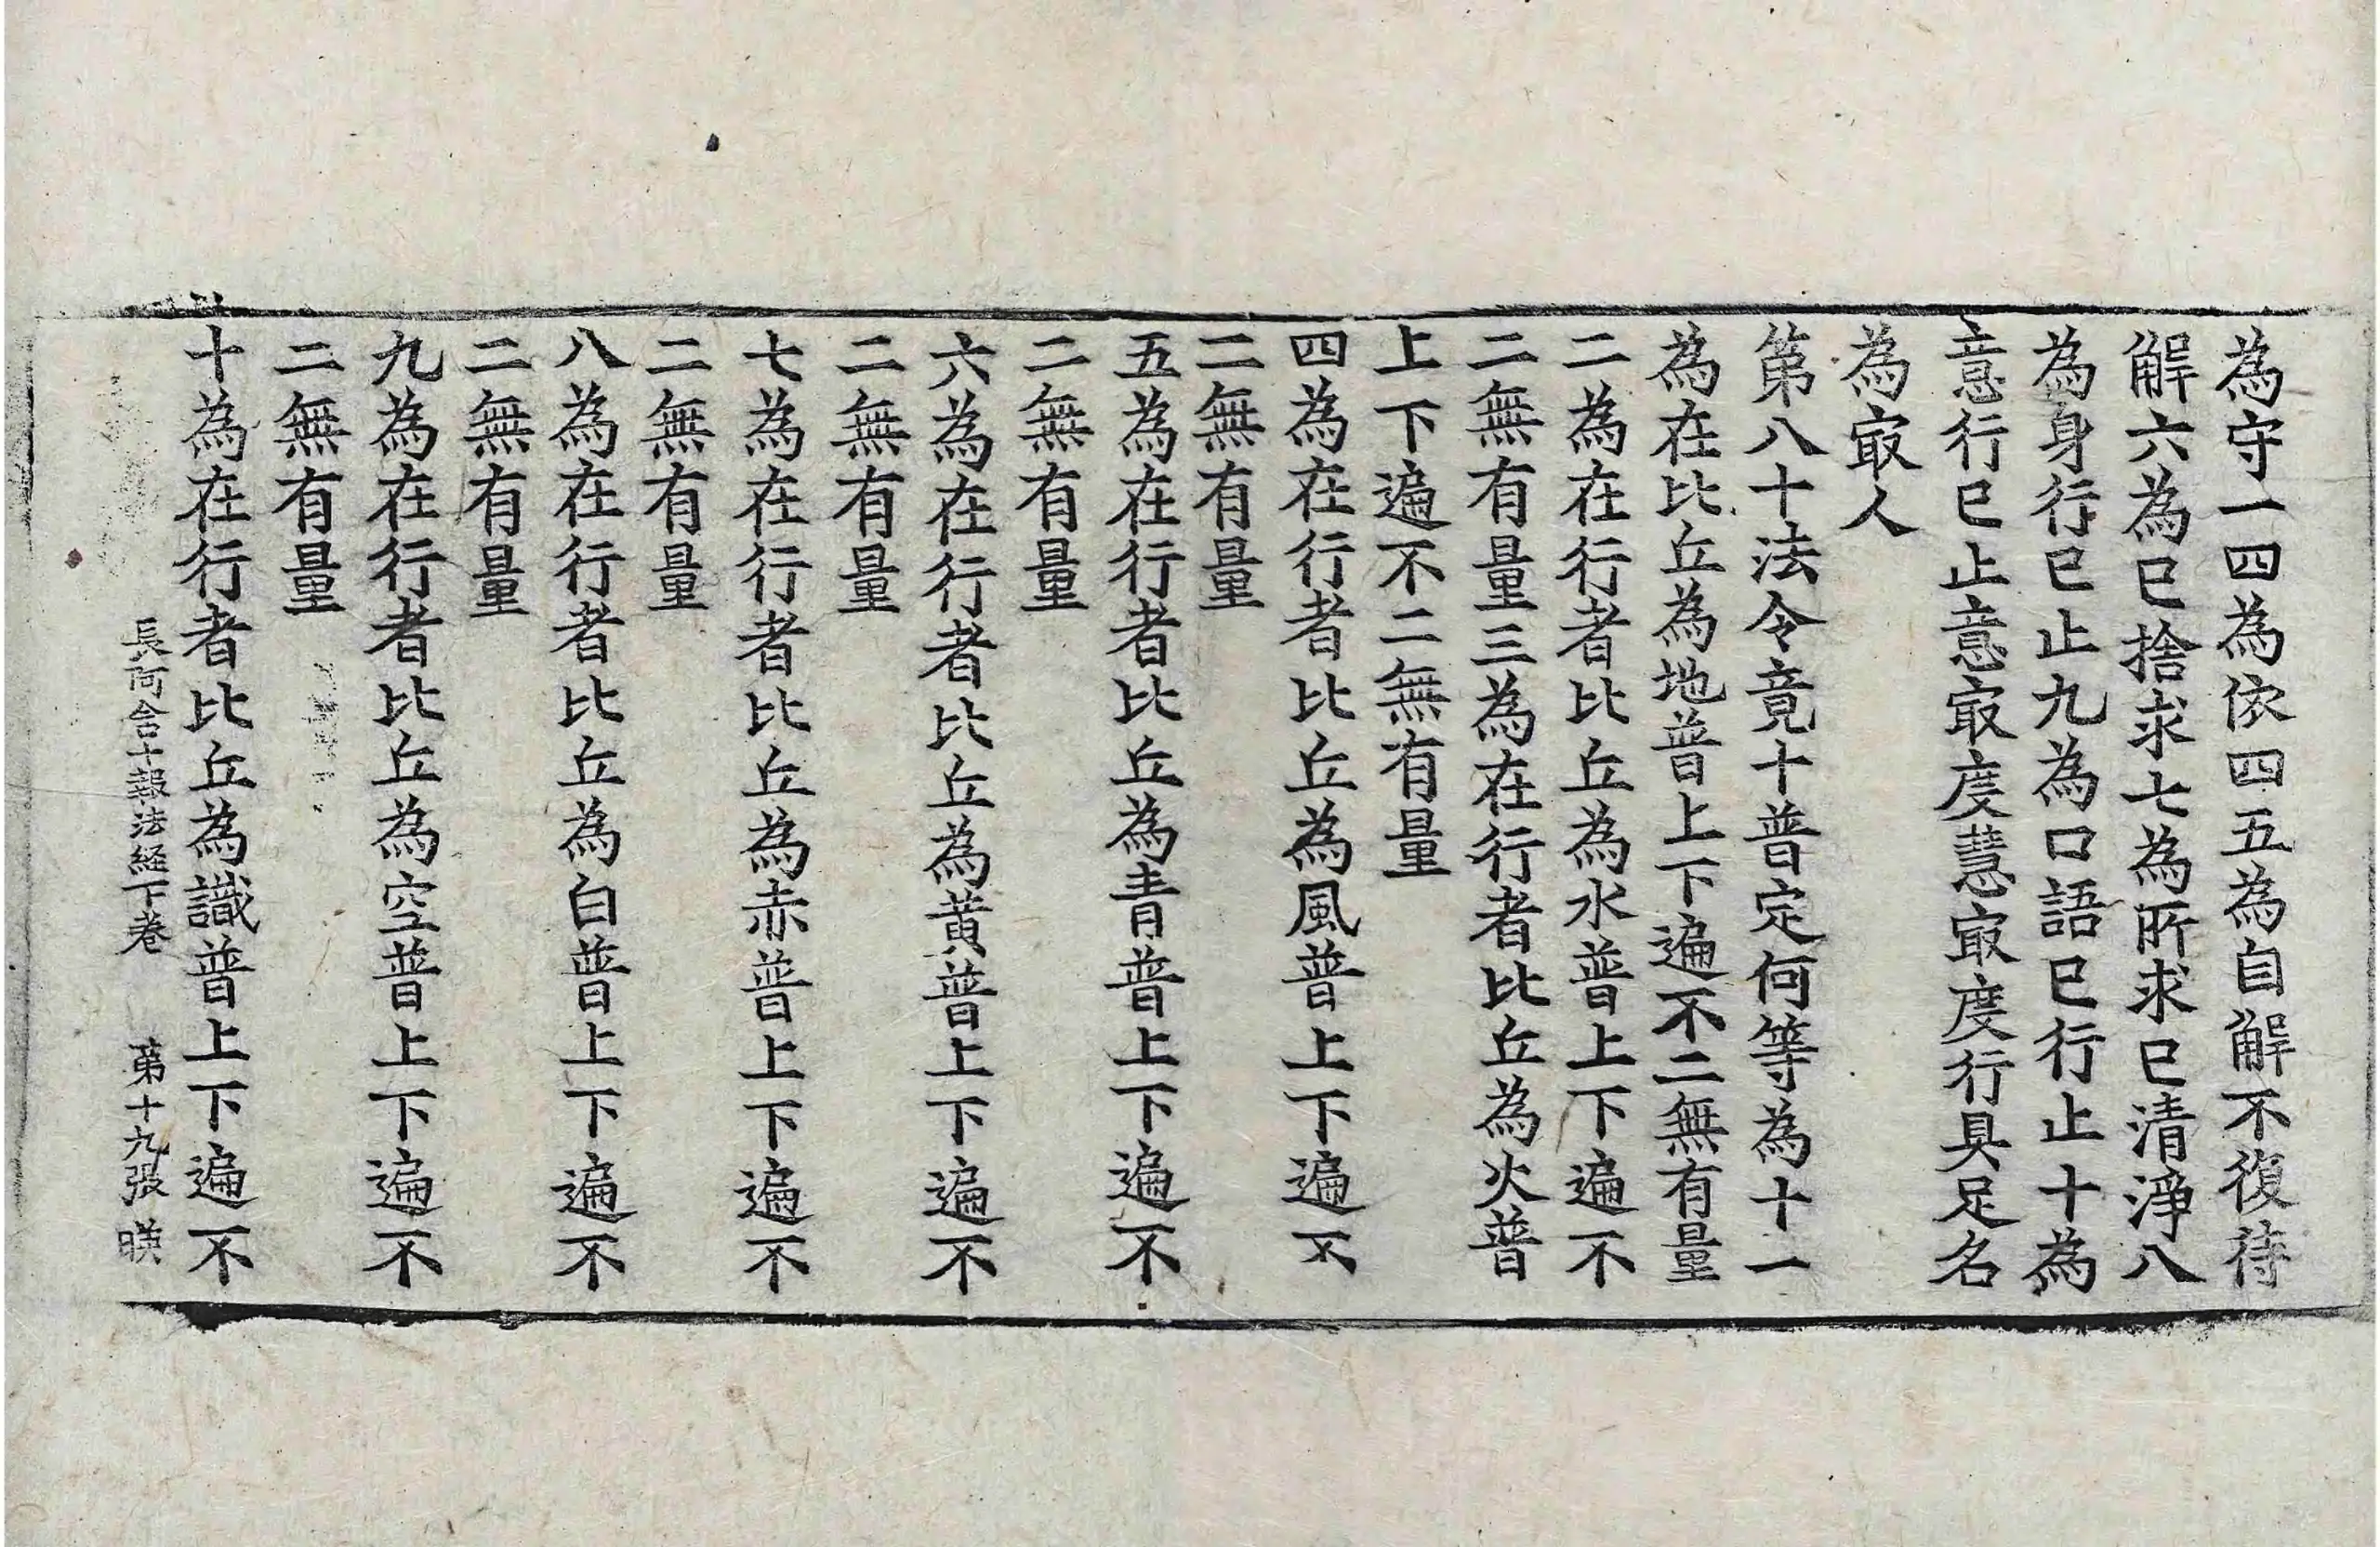 為守一四為依四五為自解不復待
解六為已捨求七為所求已清淨八
為身行已止九為口語已行止十為
意行已止意㝡度慧㝡度行具足名
為㝡人
第八十法令竟十普定何等為十一
為在比丘為地普上下遍不二無有量
二為在行者比丘為水普上下遍不
二無有量三為在行者比丘為火普
上下遍不二無有量
四為在行者比丘為風普上下遍不
二無有量
五為在行者比丘為青普上下遍不
二無有量
六為在行者比丘為黄普上下遍不
二無有量
七為在行者比丘為赤普上下遍不
二無有量
八為在行者比丘為白普上下遍不
二無有量
九為在行者比丘為空普上下遍不
二無有量
十為在行者比丘為識普上下遍不
長阿含十報法経下卷 第十九張 暎